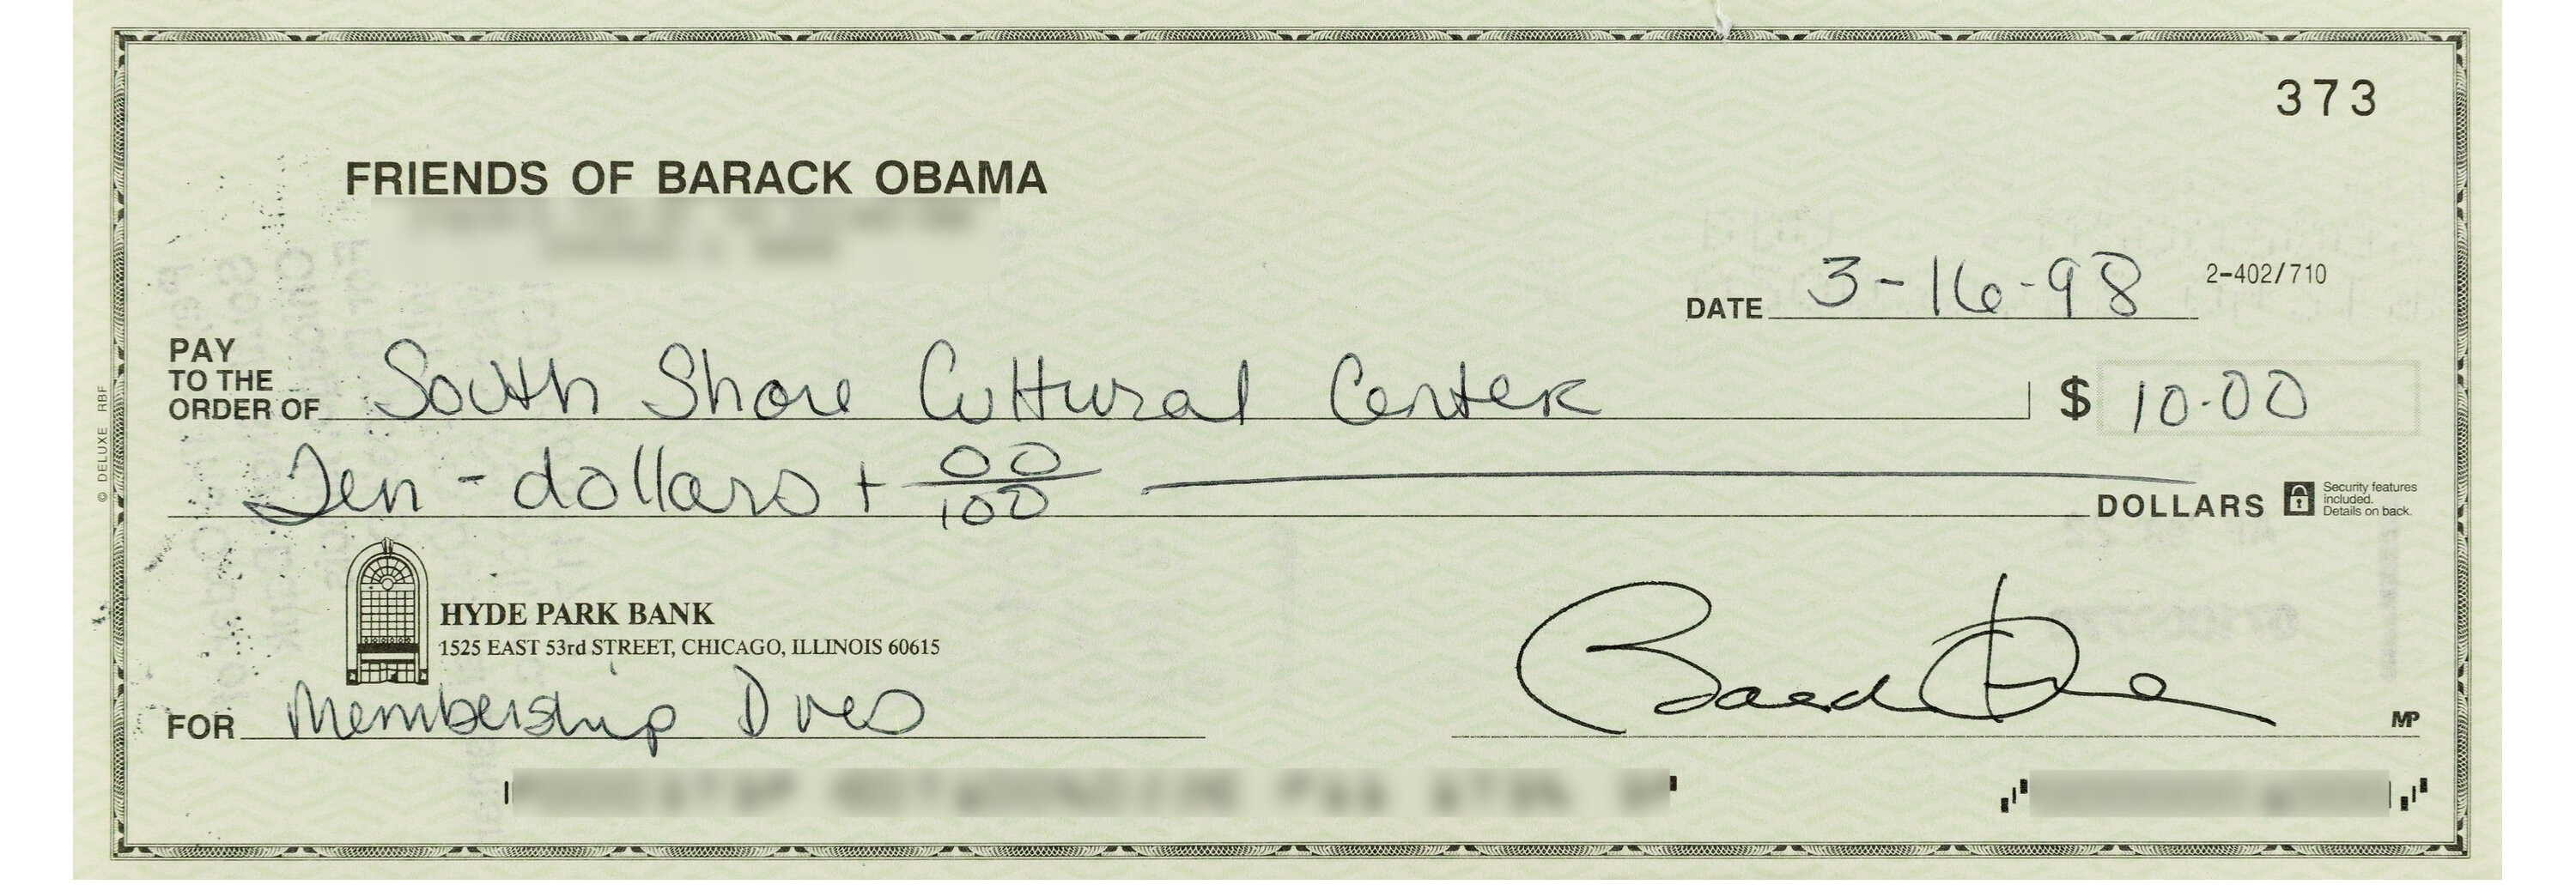 373
FRIENDS OF BARACK OBAMA
DATE 3-16-98 2-402/710
PAY
TO THE
ORDER OF South Shore Cultural Center $ 10.00
Ten - dollars + 00/100 DOLLARS
Security features
included.
Details on back.
© DELUXE RBF
HYDE PARK BANK
1525 EAST 53rd STREET, CHICAGO, ILLINOIS 60615
FOR Membership Dues
Barack Obama
MP